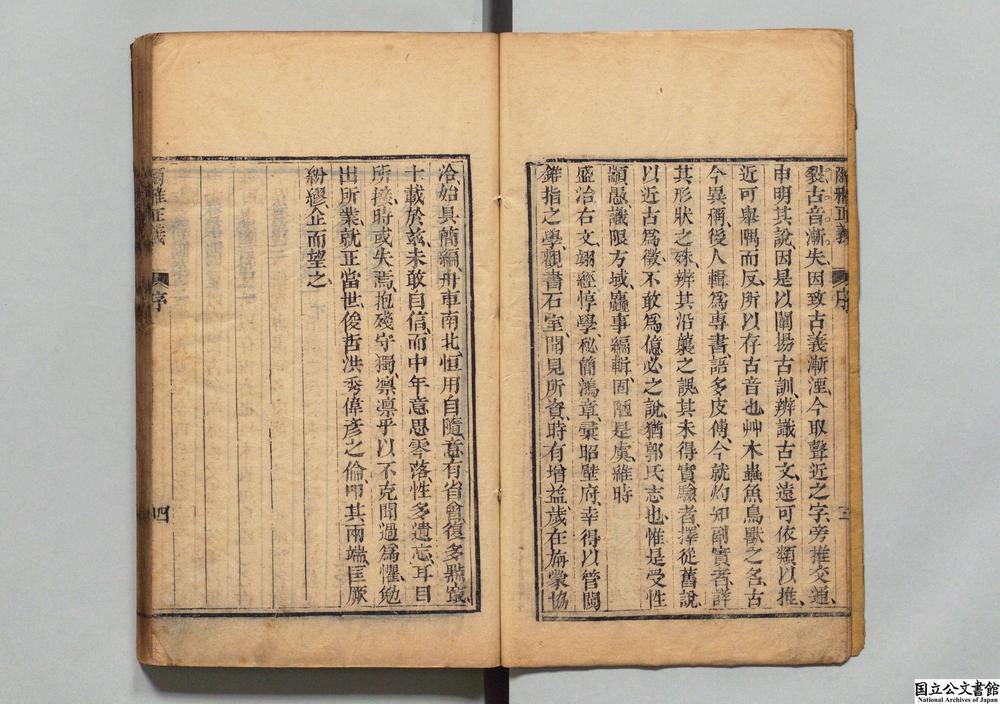 爾雅正義 序 三
裂古音漸失因致古義漸湮今取聲近之字旁推交通、
申明其說因是以闡揚古訓、辨識古文、遠可依類以推、
近可舉隅而反、所以存古音也、艸木蟲魚鳥獸之名、古
今異稱、後人輯爲專書、語多皮傅、今就灼知副實者、詳
其形狀之殊、辨其沿襲之誤、其未得實驗者、擇從舊說、
以近古爲徵、不敢爲億必之說、猶郭氏志也、惟是受性
顓愚、識限方域、麤事編輯、固陋是虞、維時
盛治右文、翊經惇學、秘簡鴻章、彙昭壁府、幸得以管闚
錐指之學、觀書石室、聞見所資、時有增益、歲在旃蒙協
洽、始具簡編、舟車南北、恒用自隨、意有省會、復多鼎竄、
十載於茲、未敢自信、而中年意思零落、性多遺忘、耳目
所接、時或失焉、抱殘守獨、凛凛乎以不克聞過爲懼、勉
出所業、就正當世、俊哲洪秀偉彥之倫、叩其兩端、匡厥
紛繆、企而望之、
爾雅正義 序 四
国立公文書館
National Archives of Japan